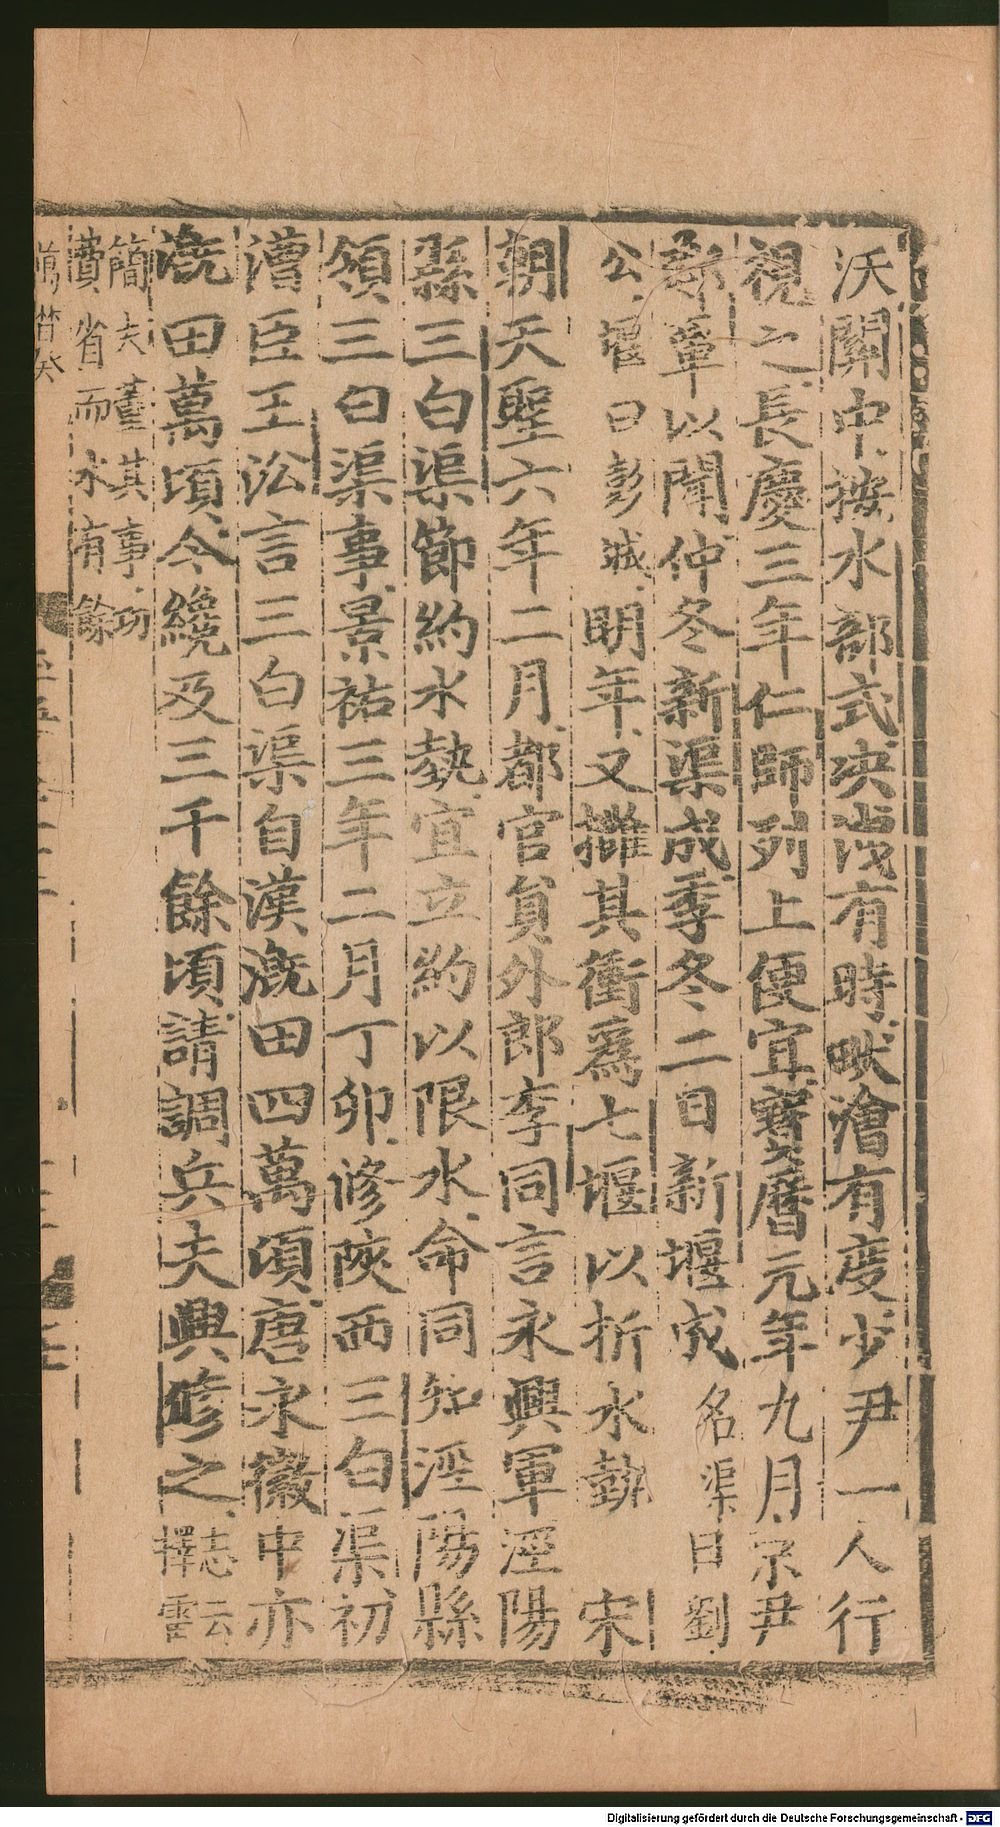 沃關中按水部式決洩有時畎澮有度少尹一人行
視之長慶三年仁師列上便宜寶曆元年九月京尹
鄭覃以聞仲冬新渠成季冬二日新堰成名渠曰劉
公堰曰彭城明年又攡其衝爲七堰以折水勢 宋
朝天聖六年二月都官負外郎李同言永興軍涇陽
縣三白渠節約水勢宜立約以限水命同知涇陽縣
領三白渠事景祐三年二月丁卯修陜西三白渠初
漕臣王沿言三白渠自漢漑田四萬頃唐永徽中亦
漑田萬頃今纔及三千餘頃請調兵夫興修之志云
擇雷
簡夫董其事功
費省而水有餘
Digitalisierung gefördert durch die Deutsche Forschungsgemeinschaft - DFG